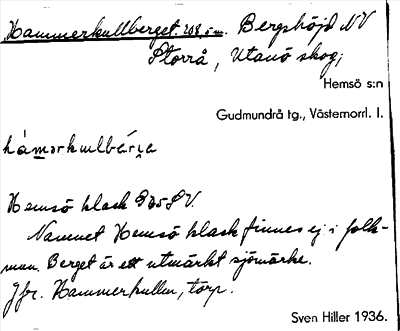 Hammerkullberget. 208,5 m. Bergshöjd NV
Storrå, Utanö skog;
Hemsö s:n
Gudmundrå tg., Västernorrl. l.
hámərkulbær̀ɟe
Hemsö klack
Namnet Hemsö klack finnes ej i folk-
mun. Berget är ett utmärkt sjömärke.
Jfr. Hammerkullen, torp.
Sven Hiller 1936.